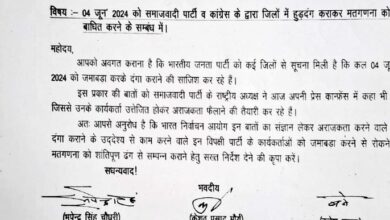 विषय :– 04 जून' 2024 को समाजवादी पार्टी व कांग्रेस के द्वारा जिलों में हुड़दंग कराकर मतगणना को
बाधित करने के सम्बंध में।
महोदय,
आपको अवगत कराना है कि भारतीय जनता पार्टी को कई जिलों से सूचना मिली है कि कल 04 जू
2024 को जमाबडा करके दंगा कराने की साजिश कर रहे है।
इस प्रकार की बातों को समाजवादी पार्टी के राष्ट्रीय अध्यक्ष ने आज अपनी प्रेस कान्फ्रेंस में कहा भी
जिससे उनके कार्यकर्ता उत्तेजित होकर अराजकता फैलाने की तैयारी कर रहे है।
अतः आपसे अनुरोध है कि भारत निर्वाचन आयोग इन बातों का संज्ञान लेकर अराजकता करने वाले
दंगा कराने के उद्देश्य से काम करने वाले इन विपक्षी पार्टी के कार्यकर्ताओं को जमाबडा करने से रोकने
मतगणना को शांतिपूर्ण ढंग से सम्पन्न कराने हेतु सख्त निर्देश देने की कृपा करें।
सधन्यवाद!
भवदीय
(भूपेन्द्र सिंह चौधरी)
(केशव प्रसाद मौर्य)